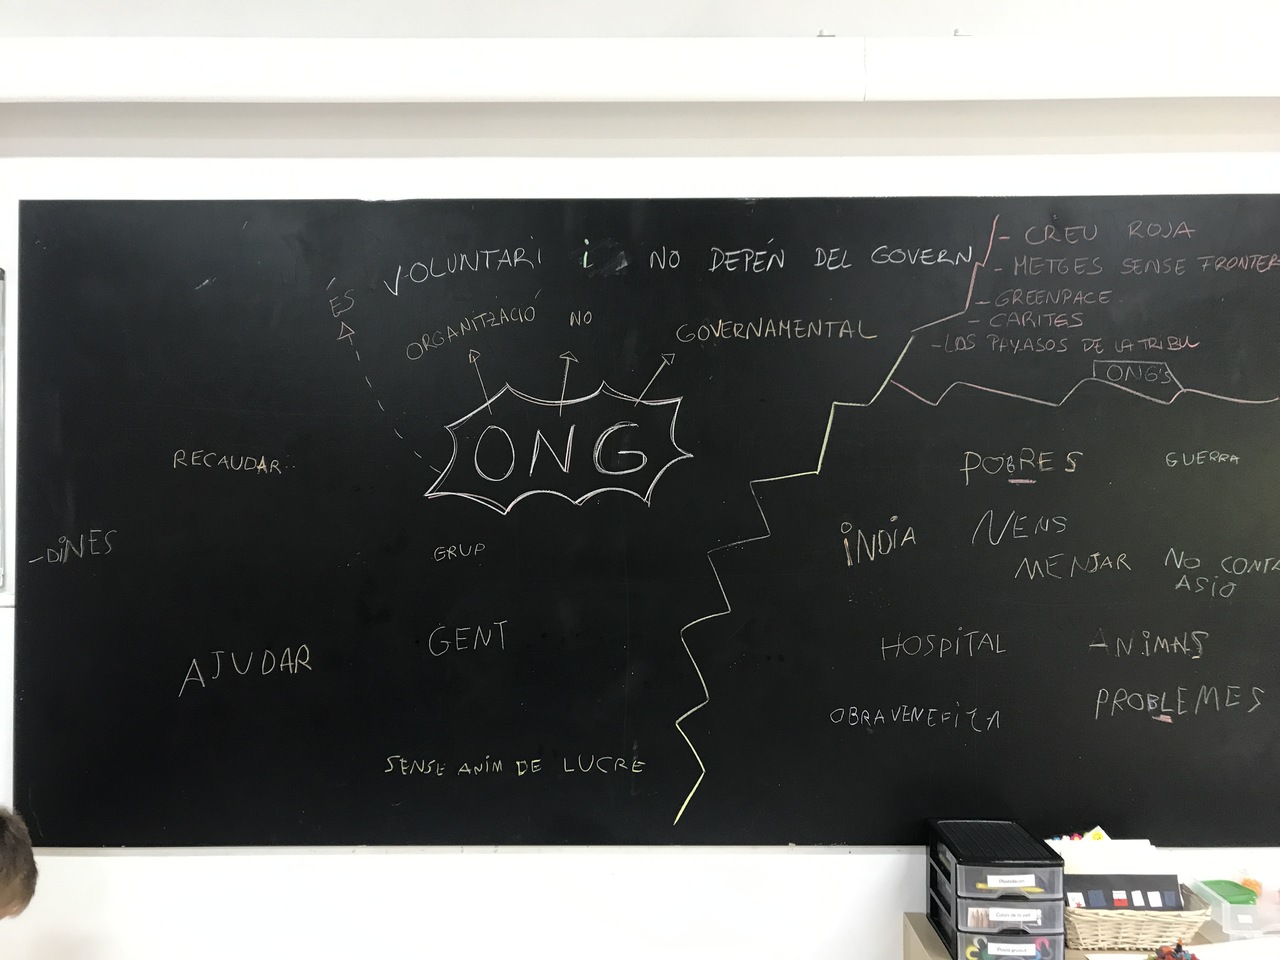 ÉS VOLUNTARI i NO DEPÉN DEL GOVERN
ORGANITZACIÓ NO GOVERNAMENTAL
ONG
RECAUDAR
-DiNES
GRUP
GENT
AJUDAR
SENSE ANIM DE LUCRE
- CREU ROJA
- METGES SENSE FRONTER
- GREENPACE
- CARITES
- LOS PAYASOS DE LA TRIBU
ONG'S
POBRES GUERRA
iNDIA NENS
MENJAR NO CONTA
ASiO
HOSPiTAL ANiMAS
OBRA VENEFiCA PROBLEMES